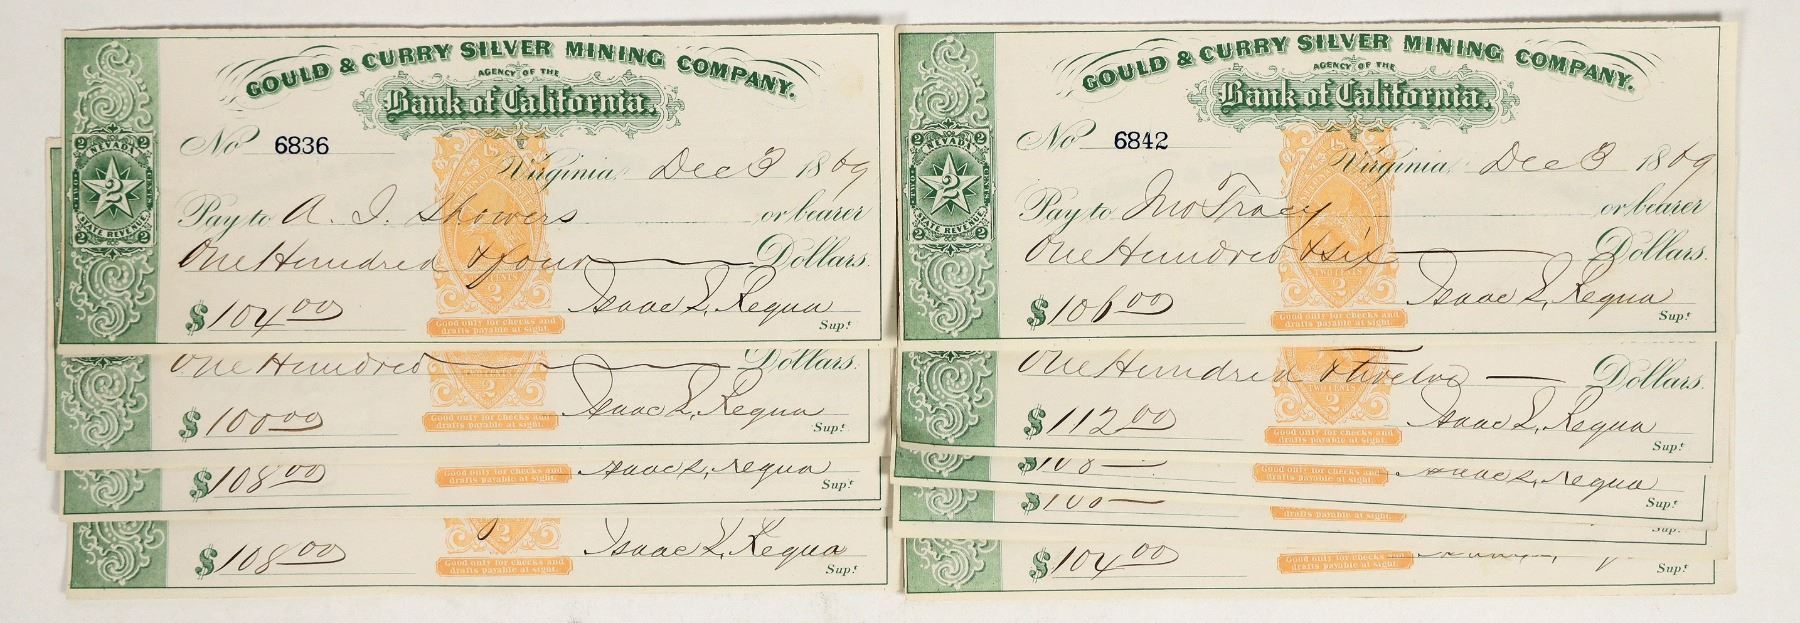 GOULD & CURRY SILVER MINING COMPANY.
AGENCY OF THE
Bank of California.
No 6836
Virginia, Dec 3 1869
Pay to A. I. Showers or bearer
One Hundred & four Dollars.
$104.00 Isaac L. Requa
Supt
2 NEVADA 2
TWO 2 CENTS
STATE REVENUE
2 2
TWO CENTS
2
Good only for checks and
drafts payable at sight.
One Hundred Dollars.
$100.00 Isaac L. Requa
Supt
2
Good only for checks and
drafts payable at sight.
$108.00 Isaac L. Requa
Supt
Good only for checks and
drafts payable at sight.
$108.00 Isaac L. Requa
Supt
2
Good only for checks and
drafts payable at sight.
GOULD & CURRY SILVER MINING COMPANY.
AGENCY OF THE
Bank of California.
No 6842
Virginia, Dec 3 1869
Pay to Jno Tracy or bearer
One Hundred & six Dollars.
$106.00 Isaac L. Requa
Supt
2 NEVADA 2
TWO 2 CENTS
STATE REVENUE
2 2
TWO CENTS
2
Good only for checks and
drafts payable at sight.
One Hundred & twelve Dollars.
$112.00 Isaac L. Requa
Supt
TWO CENTS
2
Good only for checks and
drafts payable at sight.
$108 Isaac L. Requa
Supt
Good only for checks and
drafts payable at sight.
$100
Supt
drafts payable at sight.
$104.00
Supt
Good only for checks and
drafts payable at sight.